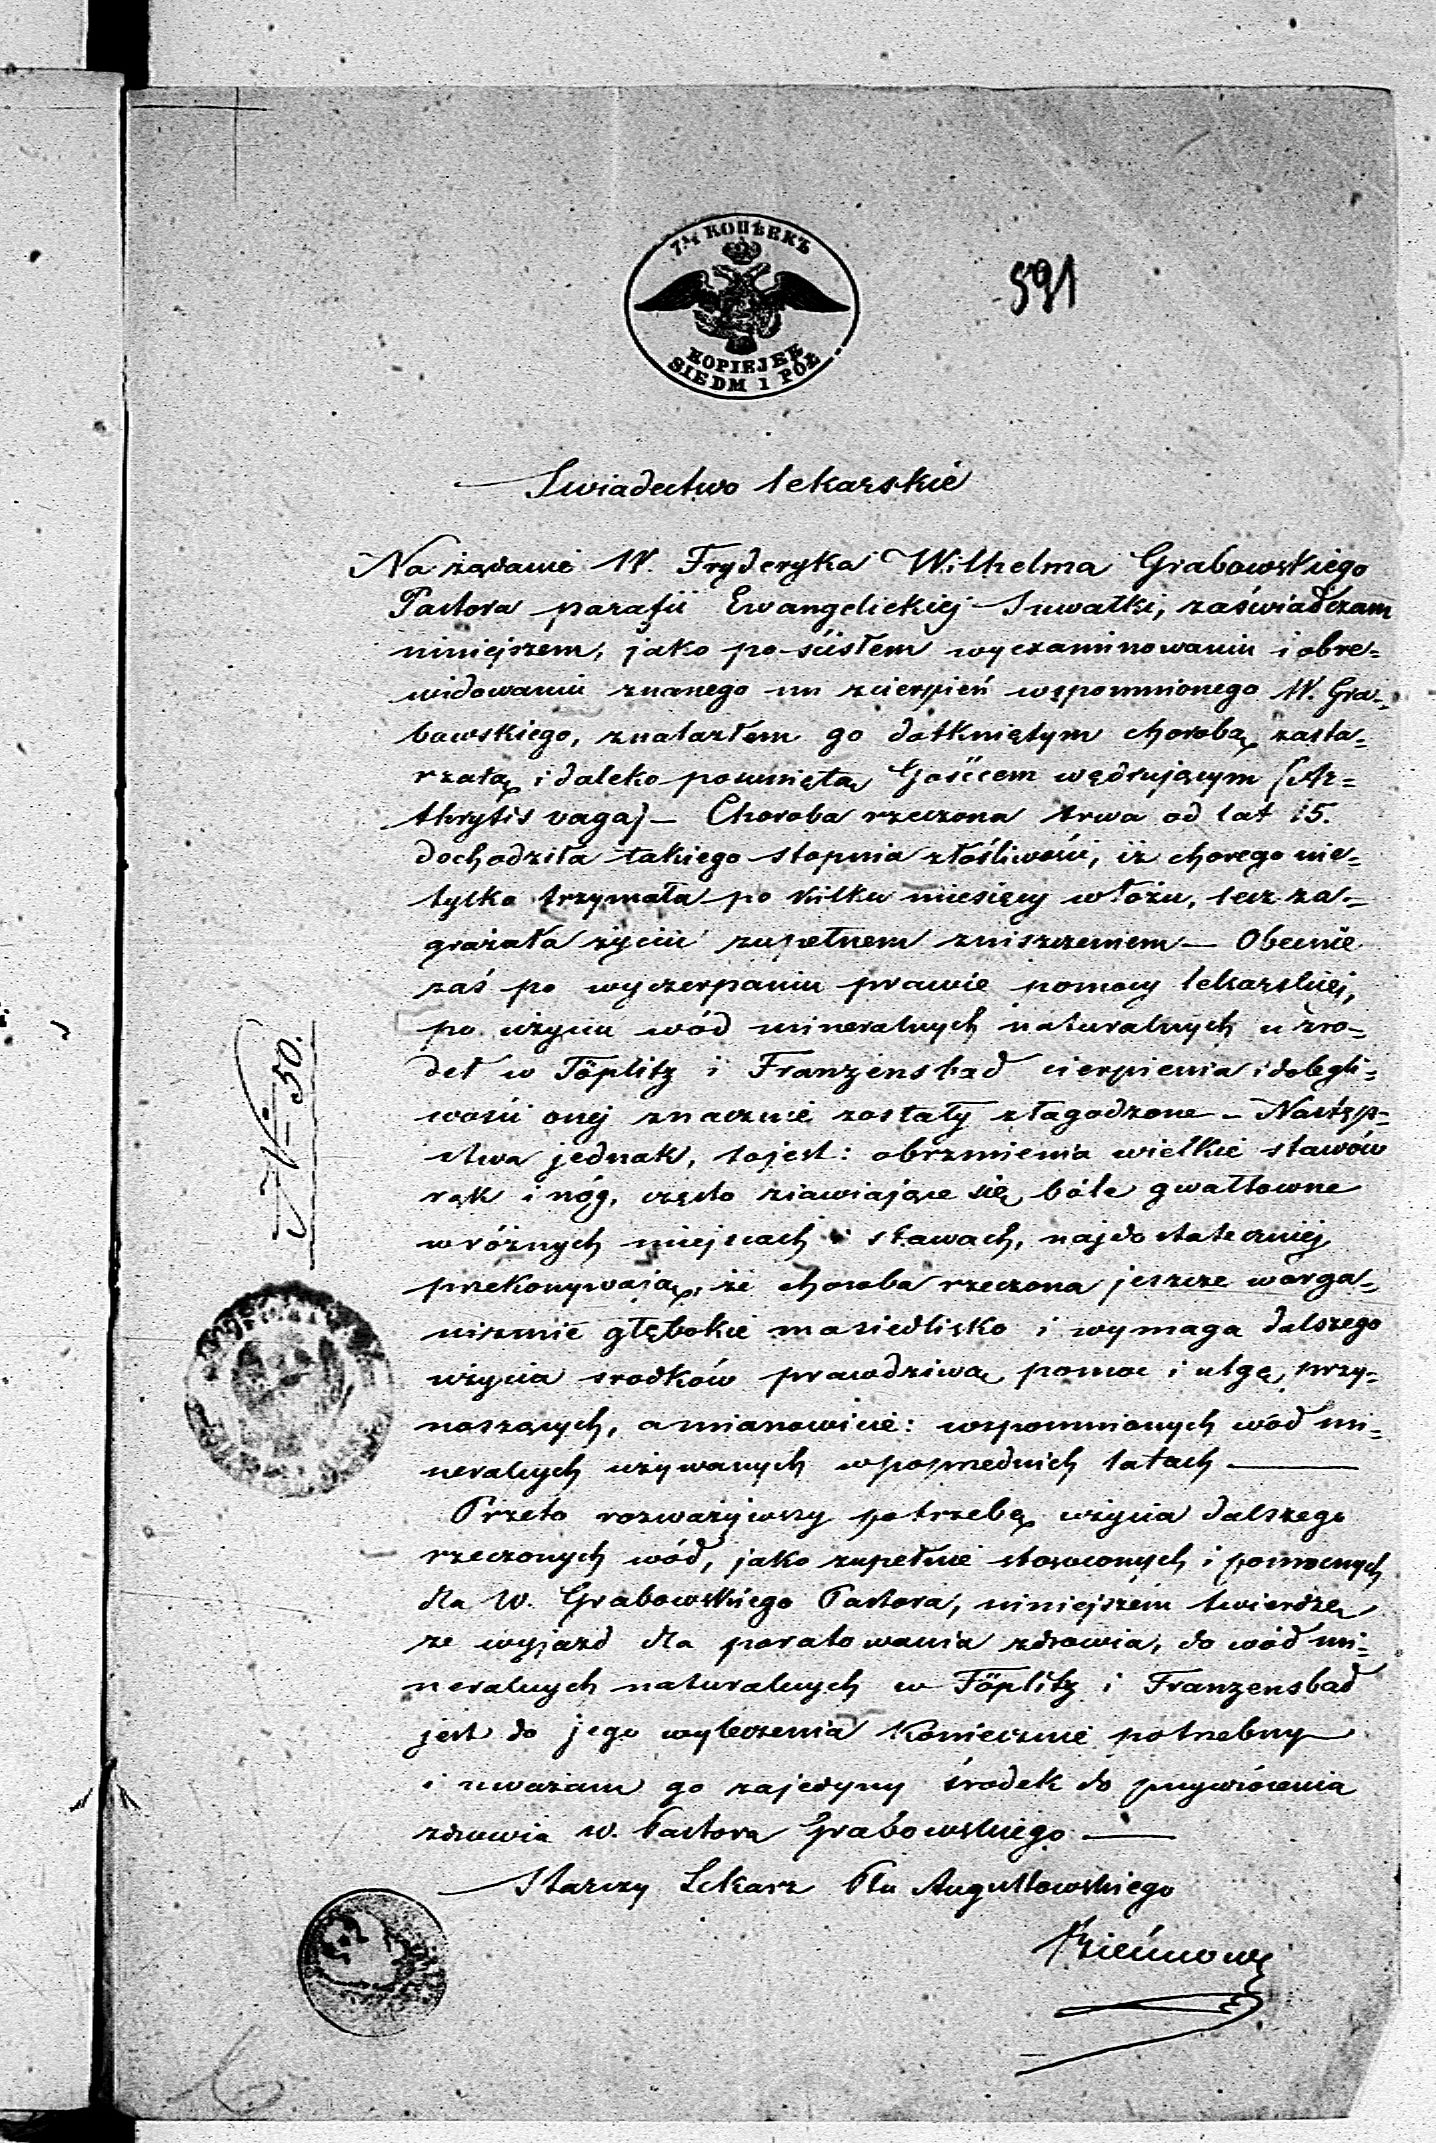 7½ КОПѢЕКЪ
KOPIEJEK
SIEDM I PÓŁ
591
Swiadectwo lekarskie
Na żądanie W. Fryderyka Wilhelma Grabowskiego
Pastora parafii Ewangelickiej Suwałki, zaświadczam
niniejszem, jako po ścisłem wyexaminowaniu i obre-
widowaniu znanego mi z cierpień wspomnionego W. Gra-
bowskiego, znalazłem go dotkniętym chorobą zasta-
rzałą i daleko posuniętą Gośćcem wędrującym (Ar-
thrytis vaga) – Choroba rzeczona trwa od lat 15.
dochodziła takiego stopnia złośliwości, iż chorego nie-
tylko trzymała po kilka miesięcy w łożu, lecz za-
grażała życiu zupełnem zniszczeniem – Obecnie
zaś po wyczerpaniu prawie pomocy lekarskiej,
po użyciu wód mineralnych naturalnych u źró-
deł w Töplitz i Franzensbad cierpienia i dolegli-
wości onej znacznie zostały złagodzone – Następ-
stwa jednak, to jest: obrzmienia wielkie stawów
rąk i nóg, często ziawiające się bóle gwałtowne
w różnych miejscach i stawach, najdostateczniej
przekonywają, że choroba rzeczona jeszcze w orga-
nizmie głębokie ma siedlisko i wymaga dalszego
użycia srodków prawdziwą pomoc i ulgę przy-
noszących, a mianowicie: wspomnionych wód mi-
neralnych używanych w poprzednich latach —
Przeto rozważywszy potrzebę użycia dalszego
rzeczonych wód, jako zupełnie stosownych i pomocnych
dla W. Grabowskiego Pastora, niniejszem twierdzę
że wyjazd dla poratowania zdrowia, do wód mi-
neralnych naturalnych w Töplitz i Franzensbad
jest do jego wyleczenia koniecznie potrzebny
i uważam go za jedyny środek do przywrócenia
zdrowia W. Pastora Grabowskiego —
Starszy Lekarz Ptu Augustowskiego
N 50.